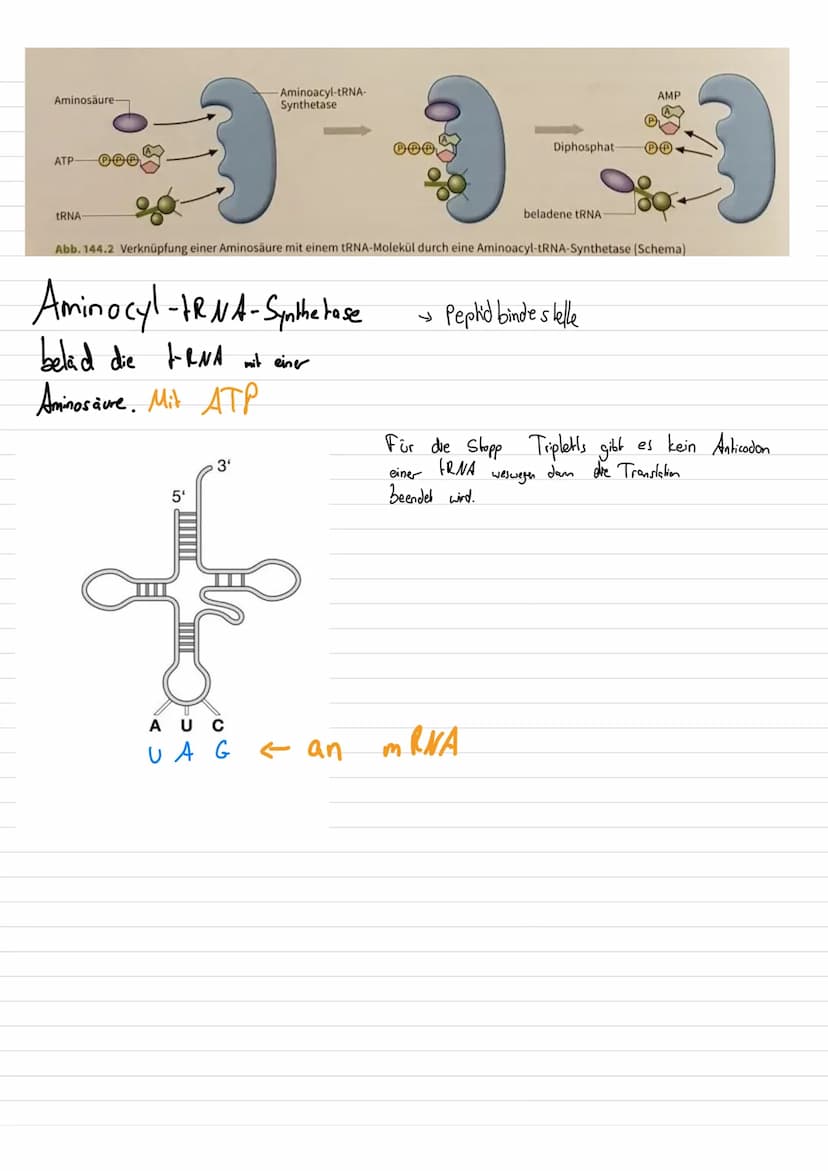 Aminosäure
Aminoacyl-tRNA-
Synthetase
ATP
P P P A
tRNA
P P P A
AMP
P A
Diphosphat
P P
beladene tRNA
Abb. 144.2 Verknüpfung einer Aminosäure mit einem tRNA-Molekül durch eine Aminoacyl-tRNA-Synthetase (Schema)
Aminocyl-tRNA-Synthetase → Peptidbindestelle
beläd die t-RNA mit einer
Aminosäure. Mit ATP
Für die Stopp Tripletts gibt es kein Anticodon
einer tRNA weswegen dann die Translation
beendet wird.
3'
5'
A U C
U A G ← an mRNA